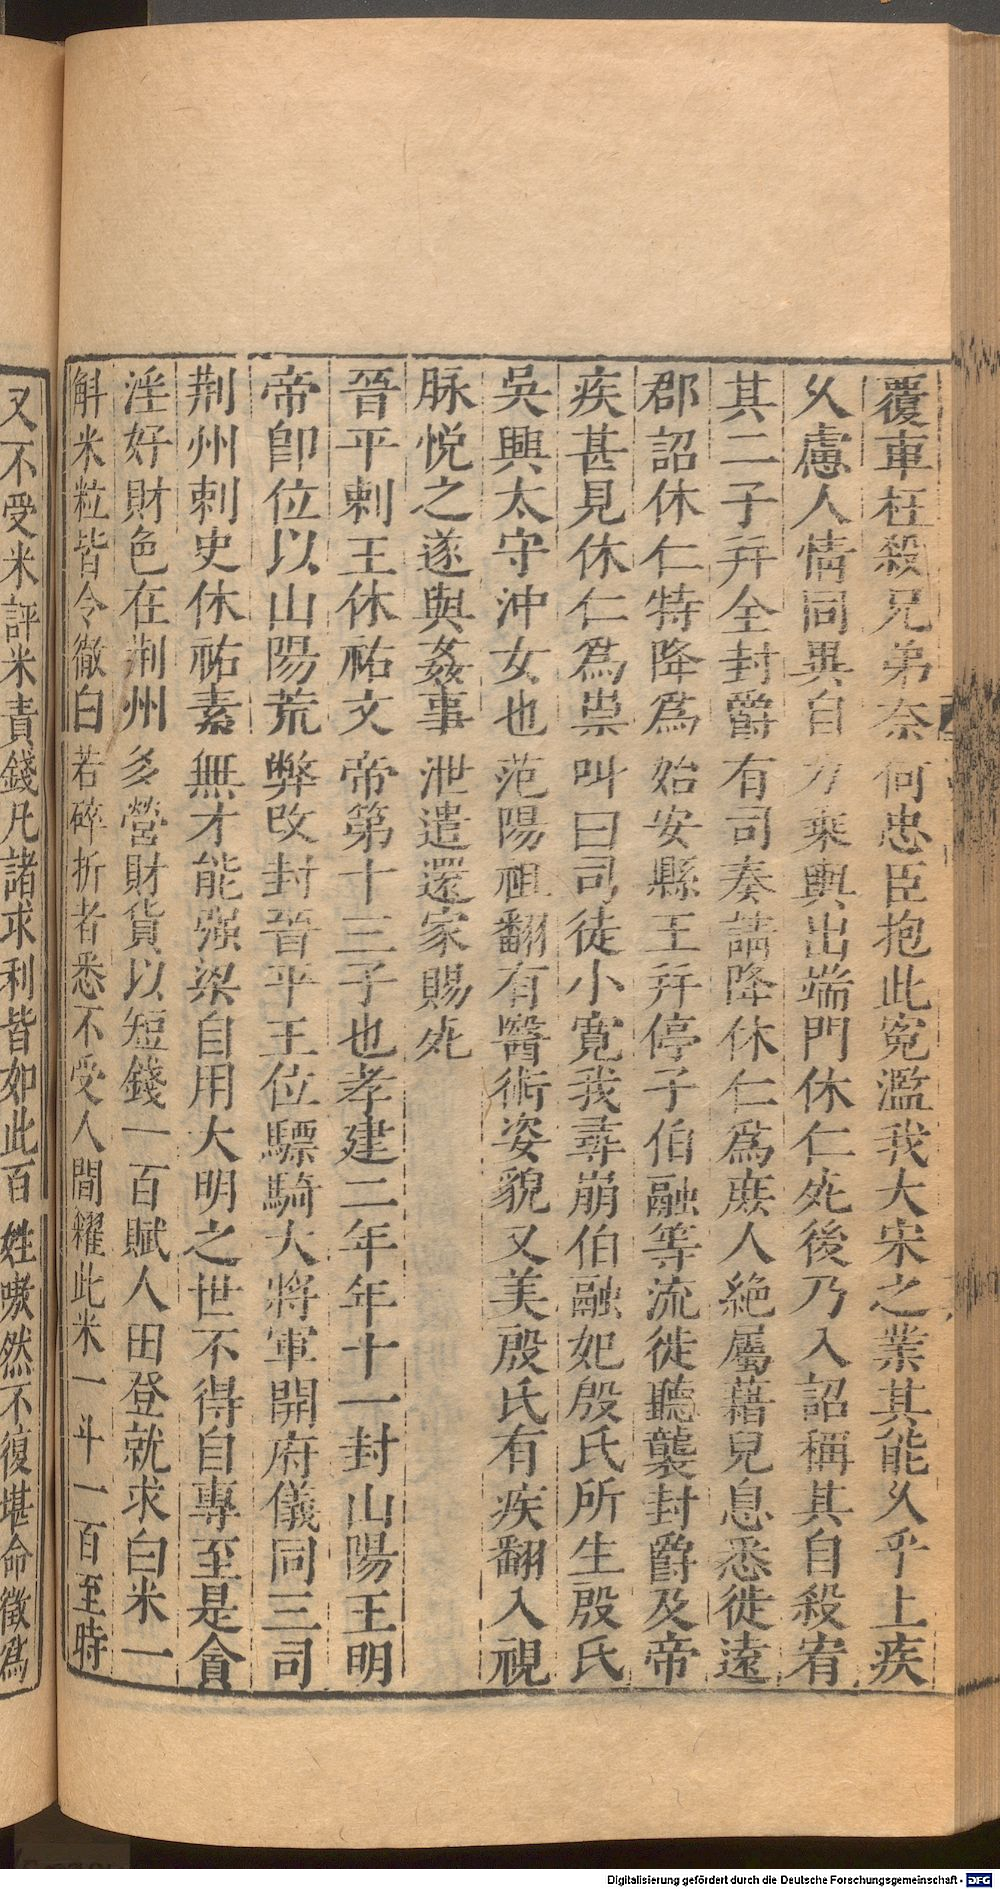 覆車枉殺兄弟奈何忠臣抱此寃濫我大宋之業其能乆乎上疾
乆慮人情同異自力乗輿出端門休仁死後乃入詔稱其自殺宥
其二子并全封爵有司奏請降休仁爲庶人絶屬藉兒息悉徙遠
郡詔休仁特降爲始安縣王并停子伯融等流徙聽襲封爵及帝
疾甚見休仁爲祟叫曰司徒小寛我尋崩伯融妃殷氏所生殷氏
吳興太守沖女也范陽祖翻有醫術姿貌又美殷氏有疾翻入視
脉悅之遂與姦事泄遣還家賜死
晉平剌王休祐文帝第十三子也孝建二年年十一封山陽王明
帝卽位以山陽荒弊改封晉平王位驃騎大將軍開府儀同三司
荆州刺史休祐素無才能强梁自用大明之世不得自專至是貪
淫好財色在荆州多營財貨以短錢一百賦人田登就求白米一
斛米粒皆令徹白若碎折者悉不受人間糴此米一斗一百至時
又不受米評米責錢凡諸求利皆如此百姓嗷然不復堪命徵爲
Digitalisierung gefördert durch die Deutsche Forschungsgemeinschaft - DFG